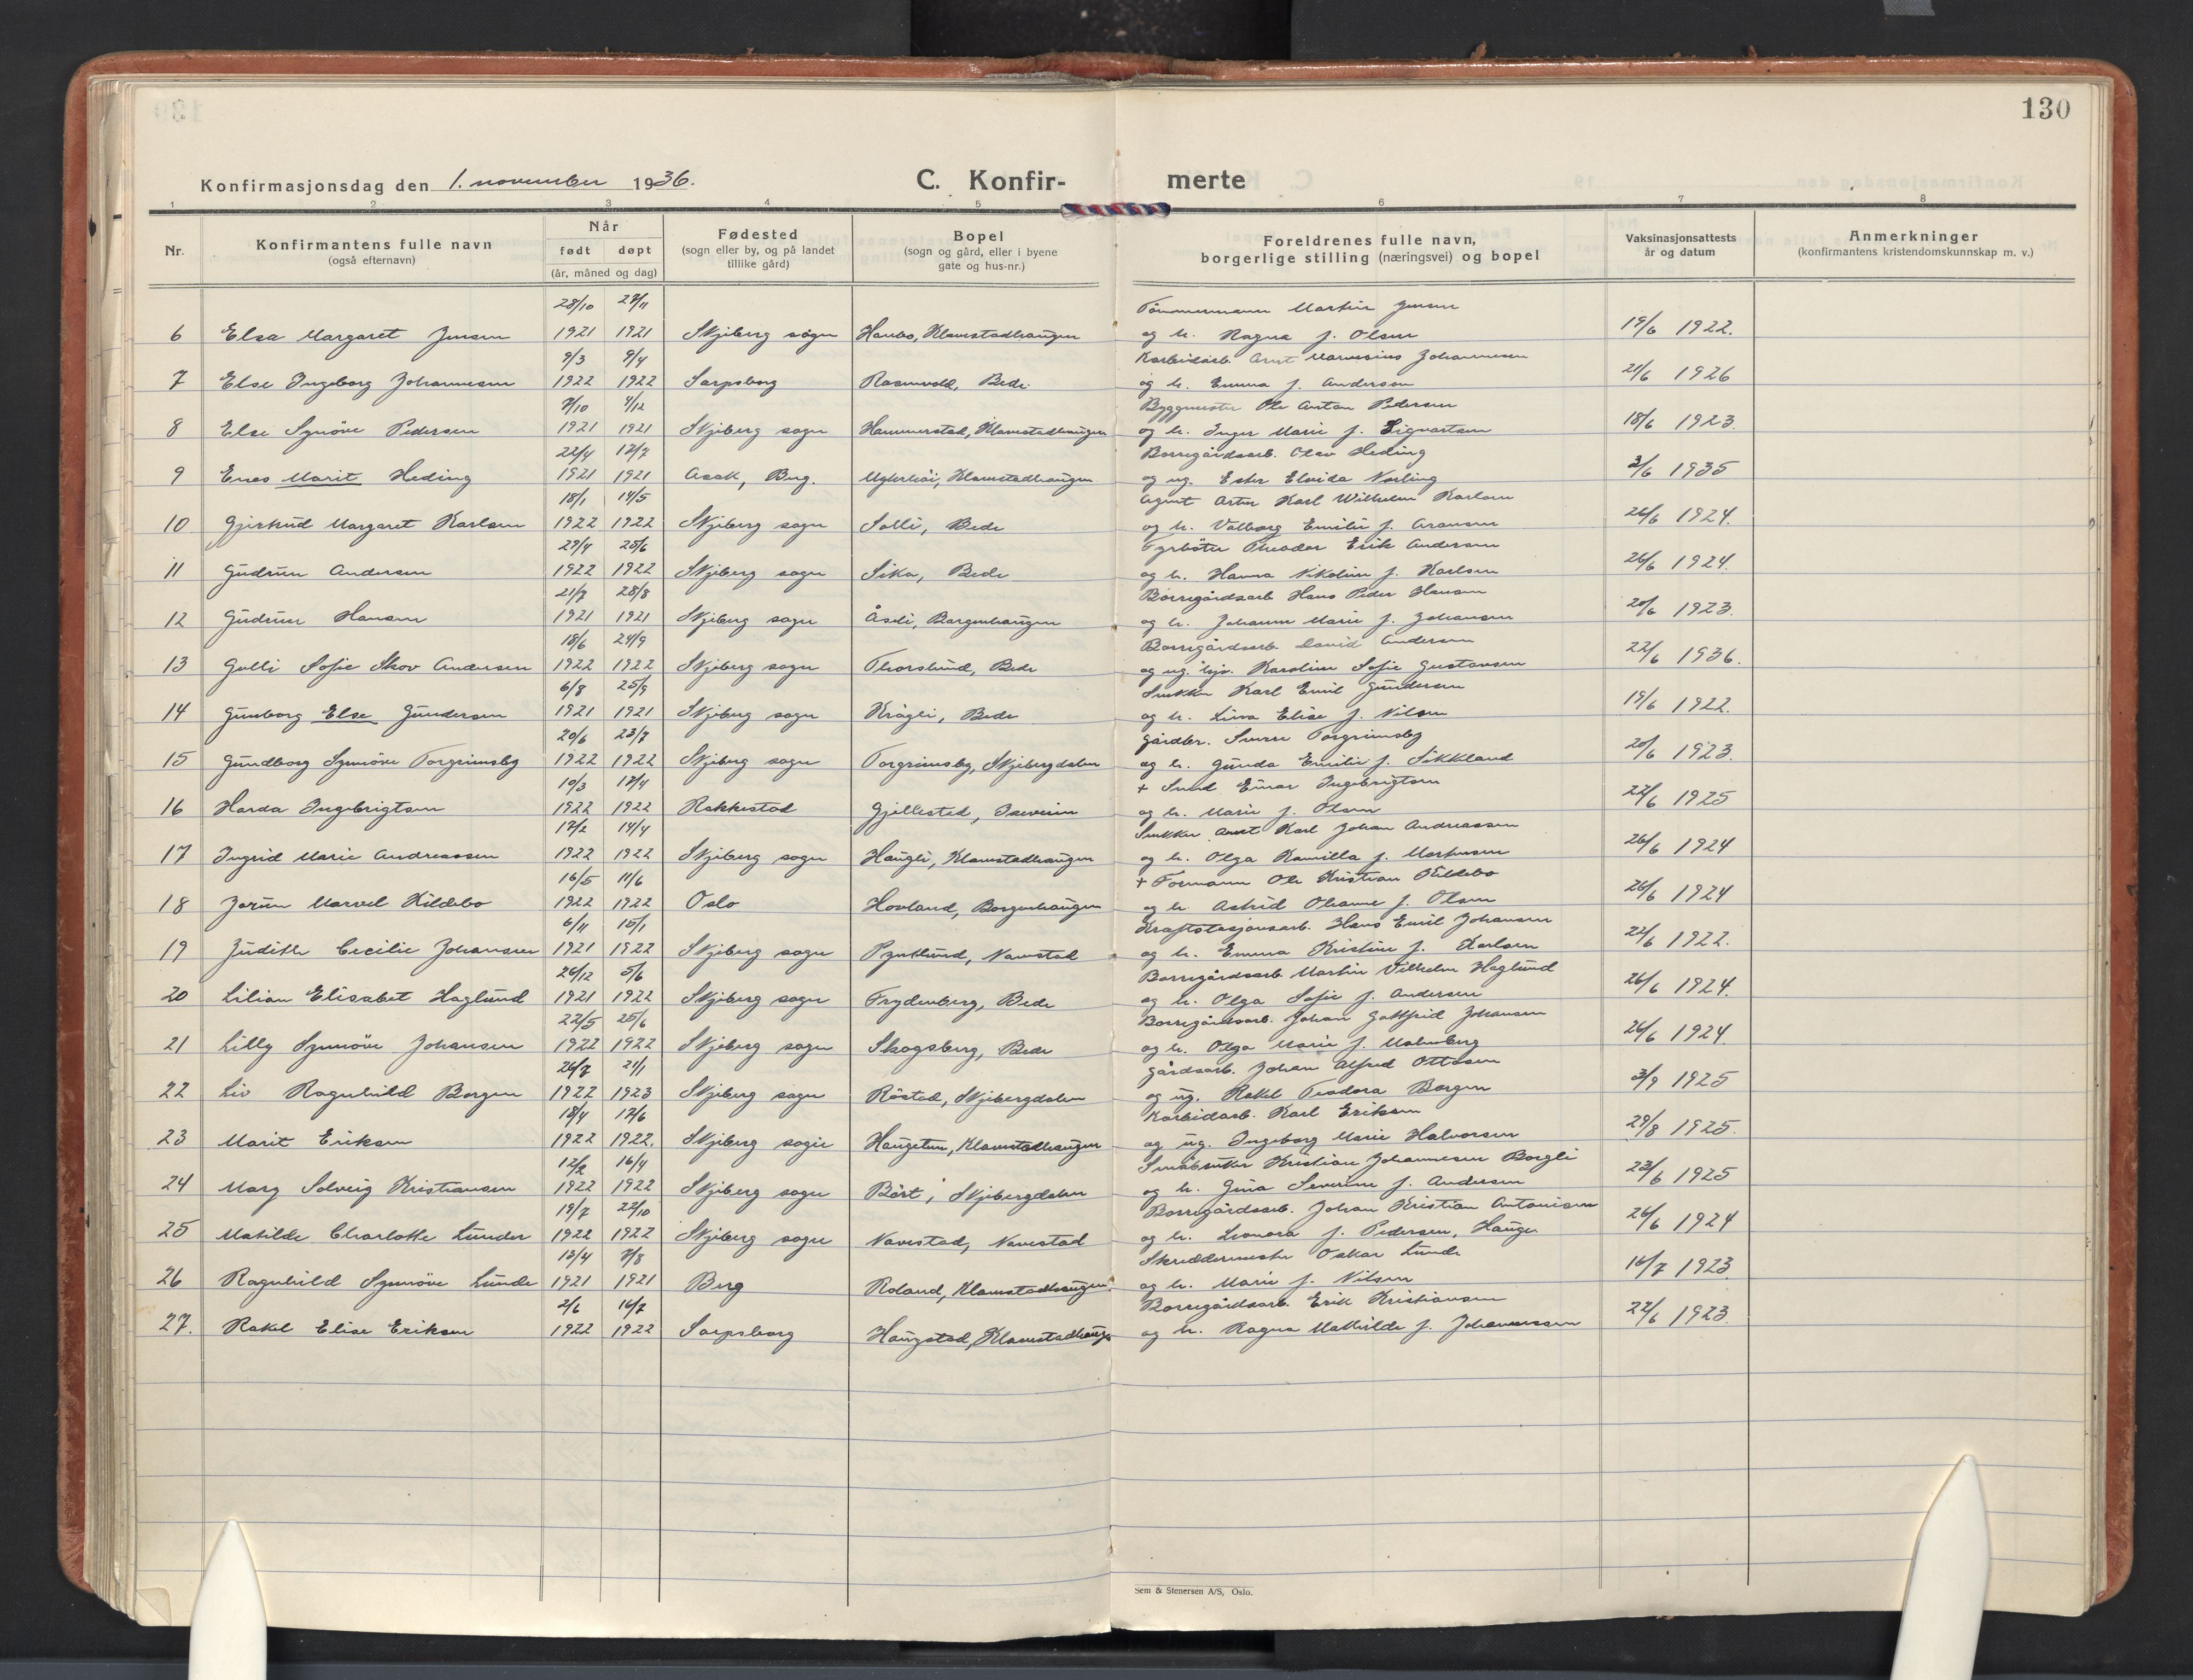 130
Konfirmasjonsdag den 1. november 1936.
C. Konfir- merte
1 2 3 4 5 6 7 8
Nr.
Konfirmantens fulle navn
(også efternavn)
Når
født døpt
(år, måned og dag)
Fødested
(sogn eller by, og på landet
tillike gård)
Bopel
(sogn og gård, eller i byene
gate og hus-nr.)
Foreldrenes fulle navn,
borgerlige stilling (næringsvei) og bopel
Vaksinasjonsattests
år og datum
Anmerkninger
(konfirmantens kristendomskunnskap m. v.)
28/10 27/11 Tömmermann Martin Jensen
6 Elsa Margaret Jensen 1921 1921 Skjeberg sogn Haubo, Klavestadhaugen og h. Ragna f. Olsen 19/6 1922.
9/3 9/4 Karbidarb. Arnt Johannesen
7 Else Ingeborg Johannesen 1922 1922 Sarpsborg Rosenvold, Bede. og h. Emma f. Andersen 21/6 1926
7/10 4/12 Byggmester Ole Anton Pedersen
8 Else Synöve Pedersen 1921 1921 Skjeberg sogn Hammerstad, Klavestadhaugen og h. Inger Marie f. Sigvartsen 18/6 1923
22/4 17/7 Borregårdsarb. Olav Heding
9 Enes Marit Heding 1921 1921 Asak, Berg. Klavestadhaugen og ug. Ester Elvida Norling 3/6 1935
18/1 14/5 Agent Artur Karl Wilhelm Karlsen
10 Gjertrud Margaret Karlsen 1922 1922 Skjeberg sogn Solli, Bede og h. Valborg Emilie f. Aronsen 26/6 1924.
29/4 25/6 Fyrböter Theodor Erik Andersen
11 Gudrun Andersen 1922 1922 Skjeberg sogn Sika, Bede og h. Hanna Nikoline f. Karlsen 26/6 1924.
21/7 28/8 Borregårdsarb. Hans Peder Hansen
12 Gudrun Hansen 1921 1921 Skjeberg sogn Åsli, Borgenhaugen og h. Johanne Marie f. Johansen 20/6 1923.
18/6 24/9 Borregårdsarb. David Andersen
13 Gulli Sofie Skov Andersen 1922 1922 Skjeberg sogn Thorslund, Bede og ug. hjv. Karoline Sofie Gustavsen 22/6 1936.
6/8 25/9 Snekker Karl Emil Gundersen
14 Gunborg Else Gundersen 1921 1921 Skjeberg sogn Krågli, Bede og h. Lina Elise f. Nilsen 19/6 1922.
20/6 23/7 Gårdbr. Sverre Torgrimsby
15 Gundborg Synnöve Torgrimsby 1922 1922 Skjeberg sogn Torgrimsby, Skjebergdalen og h. Gunda Emilie f. Sikkland 20/6 1923.
10/3 17/4 + Smed Einar Ingebrigtsen
16 Harda Ingebrigtsen 1922 1922 Rakkestad Gjellestad, Isevein og h. Marie f. Olsen 22/6 1925
17/2 14/4 Snekker Arnt Karl Johan Andreassen
17 Ingrid Marie Andreassen 1922 1922 Skjeberg sogn Haugli, Klavestadhaugen og h. Olga Kamilla f. Martinsen 26/6 1924
16/5 11/6 + Formann Ole Kristian Kildebo
18 Jorun Marvel Kildebo 1922 1922 Oslo Hovland, Borgenhaugen og h. Astrid Oleanne f. Olsen 26/6 1924
6/11 15/1 Kraftstasjonsarb. Hans Emil Johansen
19 Judith Cecilie Johansen 1921 1922 Skjeberg sogn Pyntlund, Navestad og h. Emma Kristine f. Karlsen 22/6 1922.
26/12 5/6 Borregårdsarb. Martin Vilhelm Haglund
20 Lilian Elisabet Haglund 1921 1922 Skjeberg sogn Frydenberg, Bede og h. Olga Sofie f. Andersen 26/6 1924.
22/5 25/6 Borregårdsarb. Johan Gottfrid Johansen
21 Lilly Synnöve Johansen 1922 1922 Skjeberg sogn Skogsberg, Bede og h. Olga Marie f. Malmberg 26/6 1924.
26/7 21/1 Gårdsarb. Johan Alfred Ottosen
22 Liv Ragnhild Borgen 1922 1923 Skjeberg sogn Röstad, Skjebergdalen og ug. Rakel Teodora Borgen 3/9 1925
18/4 17/6 Karbidarb. Karl Eriksen
23 Marit Eriksen 1922 1922. Skjeberg sogn Haugetun, Klavestadhaugen og ug. Ingeborg Marie Halvorsen 29/8 1925.
12/2 16/4 Småbruker Kristian Johannesen Borgli
24 Mary Solveig Kristiansen 1922 1922 Skjeberg sogn Bört, Skjebergdalen og h. Gina Severine f. Andersen 23/6 1925
19/7 22/10 Borregårdsarb. Johan Kristian Antonisen
25 Matilde Charlotte Lunder 1922 1922 Skjeberg sogn Navestad, Navestad og h. Leonora f. Pedersen, Haugen 26/6 1924
13/4 7/8 Skreddermester Oskar Lunde
26 Ragnhild Synnöve Lunde 1921 1921 Berg Roland, Klavestadhaugen. og h. Marie f. Nilsen 16/7 1923.
2/6 16/7 Borregårdsarb. Erik Kristiansen
27. Rakel Elise Eriksen 1922 1922 Sarpsborg Haugstad, Klavestadhaugen og h. Ragna Mathilde f. Johannessen 22/6 1923.
Sem & Stenersen A/S, Oslo.